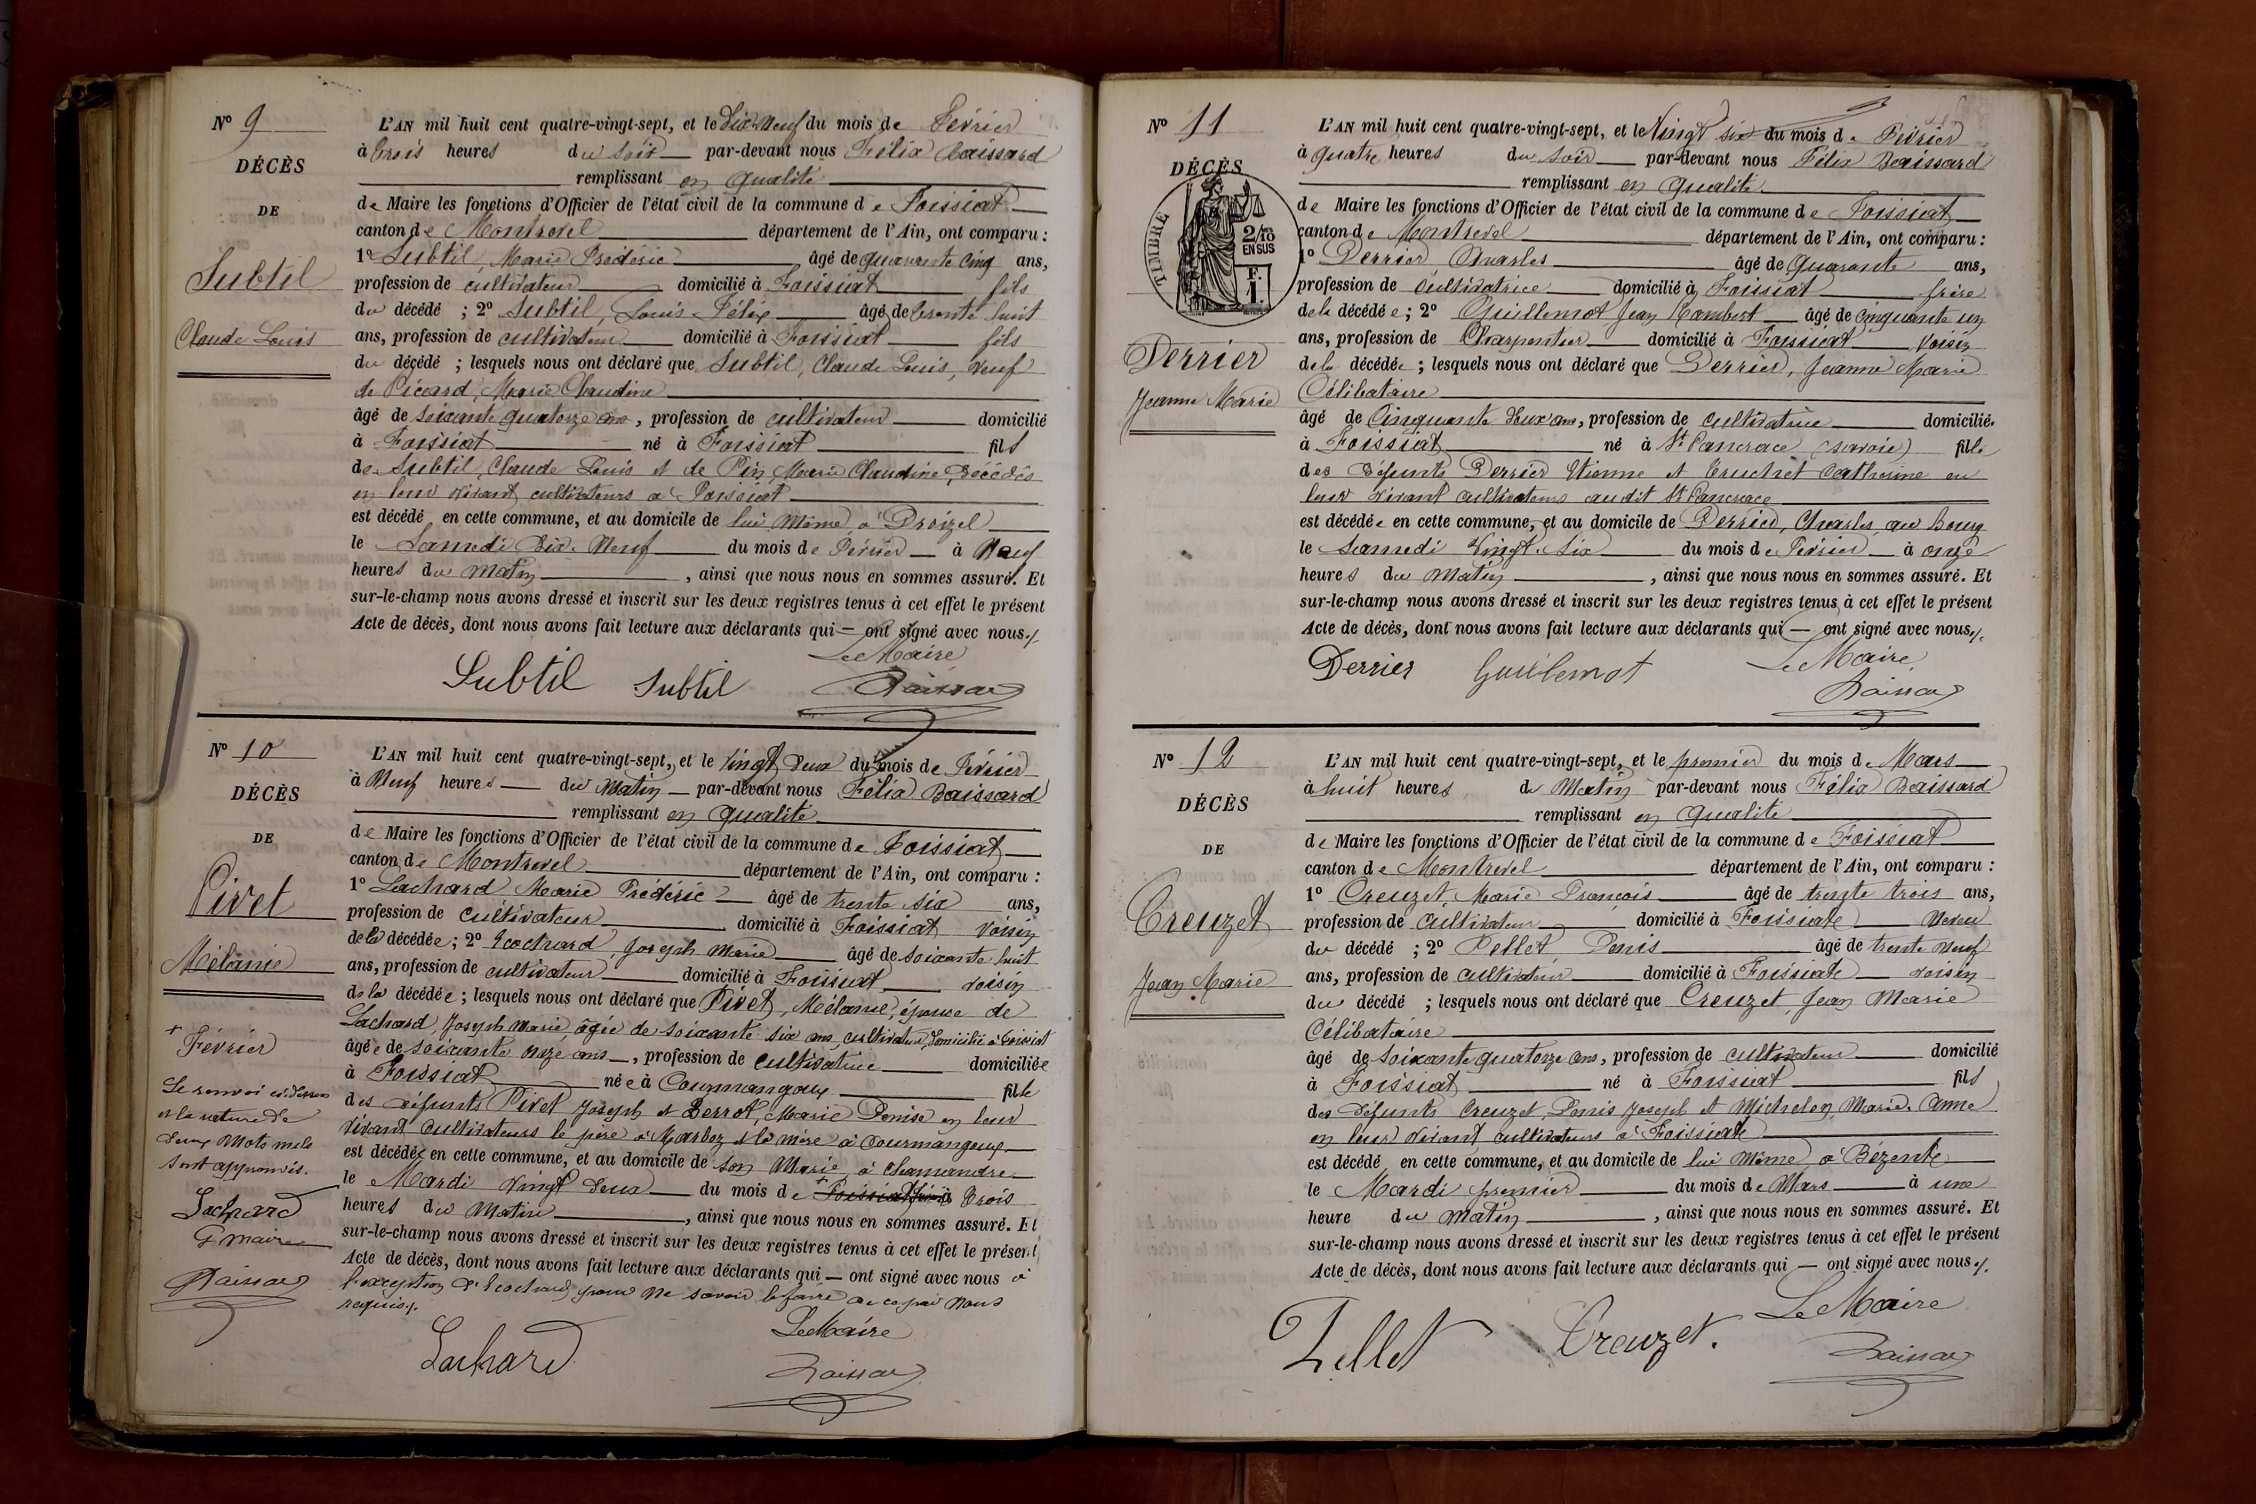 Nº 9
DÉCÈS
DE
Subtil
Claude Louis
L'AN mil huit cent quatre-vingt-sept, et le Dix Neuf du mois de Février
à trois heures du soir par-devant nous Félix Baissard
remplissant en qualité
de Maire les fonctions d'Officier de l'état civil de la commune de Foissiat
canton de Montrevel département de l'Ain, ont comparu :
1º Subtil, Marie Frédéric âgé de quarante cinq ans,
profession de cultivateur domicilié à Foissiat fils
du décédé ; 2º Subtil, Louis Félix âgé de trente huit
ans, profession de cultivateur domicilié à Foissiat fils
du décédé ; lesquels nous ont déclaré que Subtil, Claude Louis, veuf
de Picard, Marie Claudine
âgé de soixante quatorze ans, profession de cultivateur domicilié
à Foissiat né à Foissiat fils
de Subtil, Claude Louis et de Pin, Marie Claudine, décédés
en leur vivant cultivateurs à Foissiat
est décédé en cette commune, et au domicile de lui même à Broizel
le Samedi Dix-Neuf du mois de Février à Neuf
heures du Matin, ainsi que nous nous en sommes assuré. Et
sur-le-champ nous avons dressé et inscrit sur les deux registres tenus à cet effet le présent
Acte de décès, dont nous avons fait lecture aux déclarants qui — ont signé avec nous.
Le Maire
Subtil Subtil Baissard
Nº 10
DÉCÈS
DE
Pivet
Mélanie
L'AN mil huit cent quatre-vingt-sept, et le Vingt deux du mois de Février
à Neuf heures du Matin par-devant nous Félix Baissard
remplissant en qualité
de Maire les fonctions d'Officier de l'état civil de la commune de Foissiat
canton de Montrevel département de l'Ain, ont comparu :
1º Lachard, Marie Frédéric âgé de trente six ans,
profession de cultivateur domicilié à Foissiat voisin
de la décédée ; 2º Ecochard, Joseph Marie âgé de soixante huit
ans, profession de cultivateur domicilié à Foissiat voisin
de la décédée ; lesquels nous ont déclaré que Pivet, Mélanie, épouse de
Lachard, Joseph Marie, âgée de soixante six ans, cultivateur, domicilié à Foissiat
âgée de soixante onze ans, profession de cultivatrice domiciliée
à Foissiat née à Courmangoux fille
des défunts Pivet Joseph et Berrot, Marie Denise en leur
vivant cultivateurs le père à Marboz et la mère à Courmangoux
est décédée en cette commune, et au domicile de son Marie à Chamandre
le Mardi vingt deux du mois de + Foissiat trois
heures du Matin, ainsi que nous nous en sommes assuré. Et
sur-le-champ nous avons dressé et inscrit sur les deux registres tenus à cet effet le présent
Acte de décès, dont nous avons fait lecture aux déclarants qui — ont signé avec nous à
l'exception d'Ecochard pour ne savoir le faire de ce par nous
requis.
+ Février
Le renvoi ci-dessus
et la rature de
deux mots nuls
sont approuvés.
Lachard
Le maire
Baissard
Le Maire
Lachard
Baissard
Nº 11
DÉCÈS
TIMBRE
2/10
EN SUS
F.
1.
Derrier
Jeanne Marie
L'AN mil huit cent quatre-vingt-sept, et le Vingt six du mois de Février
à quatre heures du soir par-devant nous Félix Baissard
remplissant en qualité
de Maire les fonctions d'Officier de l'état civil de la commune de Foissiat
canton de Montrevel département de l'Ain, ont comparu :
1º Derrier Charles âgé de Quarante ans,
profession de cultivatrice domicilié à Foissiat frère
de la décédée ; 2º Guillemot Jean Rambert âgé de cinquante un
ans, profession de Charpentier domicilié à Foissiat voisin
de la décédée ; lesquels nous ont déclaré que Derrier, Jeanne Marie
Célibataire
âgé de Cinquante deux ans, profession de cultivatrice domicilié
à Foissiat né à St Pancrace (savoie) fille
des défunts Derrier Etienne et Truchet Catherine en
leur vivant cultivateurs audit St Pancrace
est décédée en cette commune, et au domicile de Derrier, Charles, au bourg
le Samedi vingt-six du mois de Février à onze
heures du Matin, ainsi que nous nous en sommes assuré. Et
sur-le-champ nous avons dressé et inscrit sur les deux registres tenus à cet effet le présent
Acte de décès, dont nous avons fait lecture aux déclarants qui — ont signé avec nous.
Derrier Guillemot Le Maire
Baissard
Nº 12
DÉCÈS
DE
Creuzet
Jean Marie
L'AN mil huit cent quatre-vingt-sept, et le premier du mois de Mars
à huit heures du Matin par-devant nous Félix Baissard
remplissant en qualité
de Maire les fonctions d'Officier de l'état civil de la commune de Foissiat
canton de Montrevel département de l'Ain, ont comparu :
1º Creuzet, Marie François âgé de trente trois ans,
profession de cultivateur domicilié à Foissiat neveu
du décédé ; 2º Pellet Denis âgé de trente neuf
ans, profession de cultivateur domicilié à Foissiat voisin
du décédé ; lesquels nous ont déclaré que Creuzet, Jean Marie
Célibataire
âgé de soixante quatorze ans, profession de cultivateur domicilié
à Foissiat né à Foissiat fils
des défunts Creuzet, Denis Joseph et Michelon, Marie-Anne
en leur vivant cultivateurs à Foissiat
est décédé en cette commune, et au domicile de lui même à Bézente
le Mardi premier du mois de Mars à une
heure du matin, ainsi que nous nous en sommes assuré. Et
sur-le-champ nous avons dressé et inscrit sur les deux registres tenus à cet effet le présent
Acte de décès, dont nous avons fait lecture aux déclarants qui — ont signé avec nous.
Le Maire
Pellet Creuzet.
Baissard